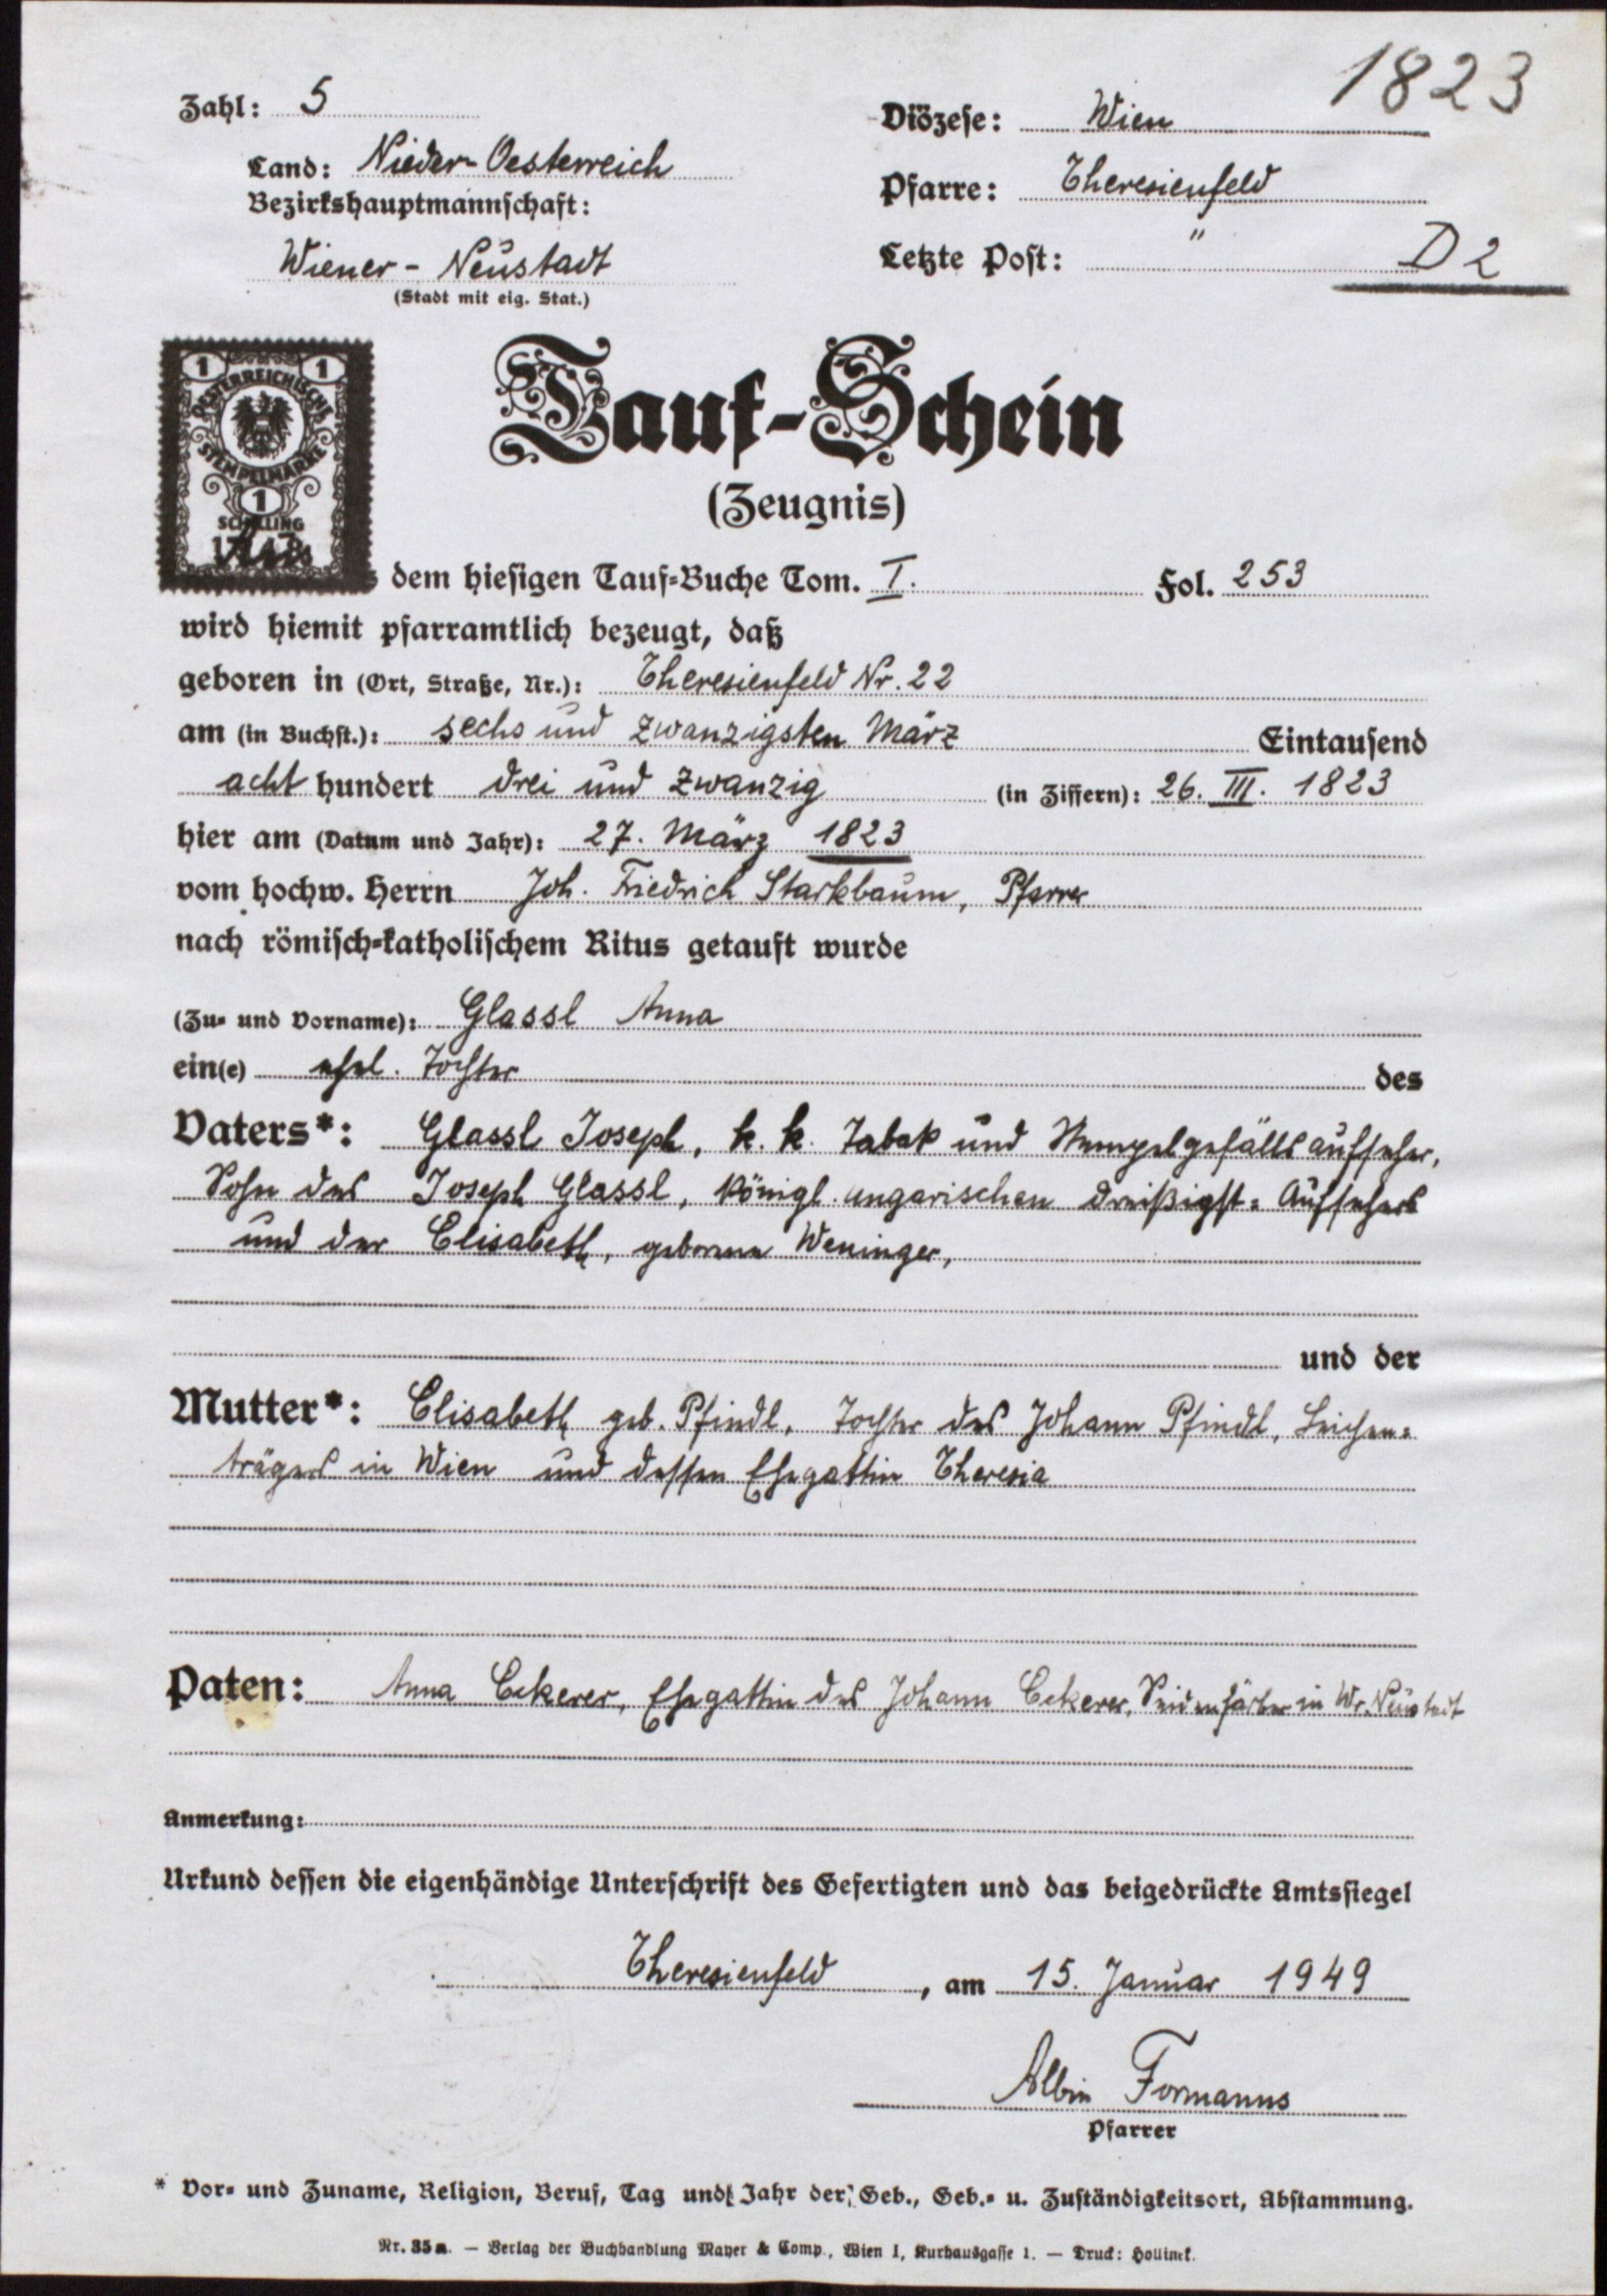 1823
Zahl: 5
Diözese: Wien
Land: Nieder-Oesterreich
Pfarre: Theresienfeld
Bezirkshauptmannschaft:
Wiener-Neustadt
(Stadt mit eig. Stat.)
Letzte Post: "
D2
1 1
OESTERREICHISCHE
STEMPELMARKE
1
SCHILLING
Tauf-Schein
(Zeugnis)
dem hiesigen Tauf-Buche Tom. I. Fol. 253
wird hiemit pfarramtlich bezeugt, daß
geboren in (Ort, Straße, Nr.): Theresienfeld Nr. 22
am (in Buchst.): sechs und zwanzigsten März Eintausend
acht hundert drei und zwanzig (in Ziffern): 26. III. 1823
hier am (Datum und Jahr): 27. März 1823
vom hochw. Herrn Joh. Friedrich Starkbaum, Pfarrer
nach römisch-katholischem Ritus getauft wurde
(Zu- und Vorname): Glassl Anna
ein(e) ehel. Tochter des
Vaters*: Glassl Joseph, k. k. Tabak und Stempelgefällsaufseher,
Sohn des Joseph Glassl, königl. ungarischen Dreißigst-Aufsehers
und der Elisabeth, geborene Weninger,
und der
Mutter*: Elisabeth geb. Pfindl, Tochter des Johann Pfindl, Leichen-
trägers in Wien und dessen Ehegattin Theresia
Paten: Anna Eckerer, Ehegattin des Johann Eckerer, Seidenfärber in Wr. Neustadt
Anmerkung:
Urkund dessen die eigenhändige Unterschrift des Gefertigten und das beigedrückte Amtssiegel
Theresienfeld, am 15. Januar 1949
Albin Formanns
Pfarrer
* Vor- und Zuname, Religion, Beruf, Tag und Jahr der Geb., Geb.- u. Zuständigkeitsort, Abstammung.
Nr. 35a. — Verlag der Buchhandlung Mayer & Comp., Wien I, Kurhausgasse 1. — Druck: Hollinek.